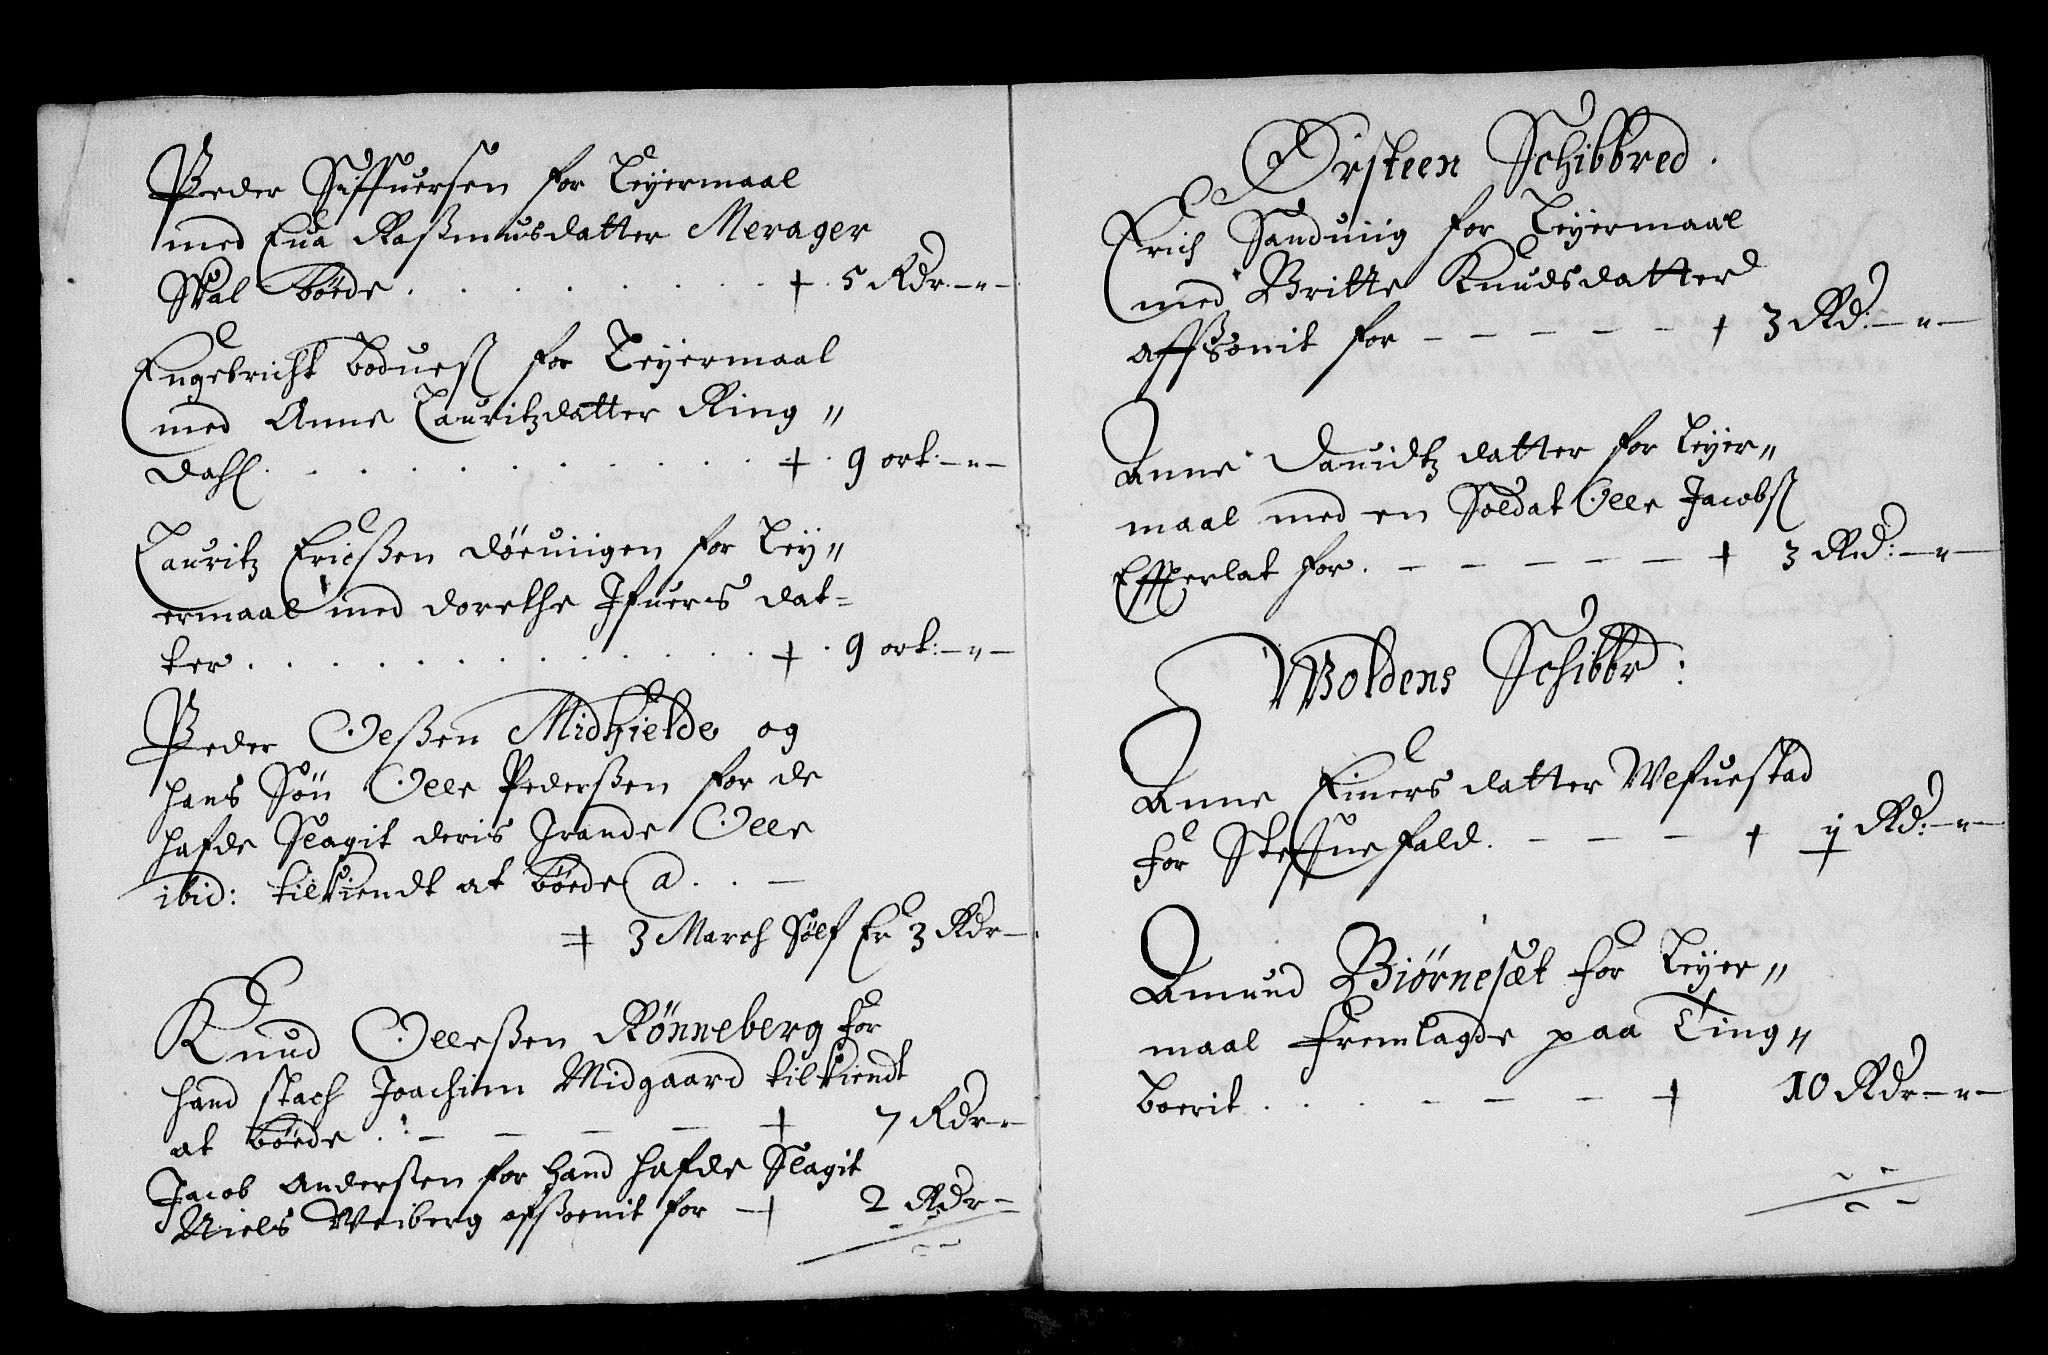 Peder Siffuersen for Leyermaal
med Eua Raßmusdatter Merager
Skal bøede . . . . . . . . + . 5 Rdr. — „ —
Engebricht boduesß for Leyermaal
med Anne Lauritzdatter Ring „
dahl . . . . . . . . . . + . 9 ort: — „ —
Lauritz Ericßen døeuiigen for Ley „
ermaal med dorethe Ifuers dat=
ter . . . . . . . . . . + . 9 ort: — „ —
Peder Oelßen Midhielde og
hans Søn Olle Pederßen for de
hafde Slagit deris Grande Olle
ibid: tilkiendt at bøede a . . —
+ 3 March Sølf Er 3 Rdr —
Knud Olleßen Rønneberg for
hand stach Joachim Midgaard tilkiendt
at bøede . : — — — — + 7 Rdr — „
Jacob Anderßen for hand hafde Slagit
Niels Weiberg afßoenit for — + 2 Rdr —
Ørsteen Schibbred .
Erich Sanduiig for Leyermaal
med Britte Knudsdatter
affßonit for — — — — — + 3 Rd: — „ —
Anne Dauidtz datter for Leyer „
maal med en Soldat Olle Jacobsß
Effterlat for . — — — — — + 3 Rd: — „ —
Woldens Schibbr :
Anne Einers datter Ulfuestad
for Steffnefald . — — — + ij Rd: — „ —
Amund Biørnesæt for Leyer „
maal fremlagde paa Ting „
boerit . . . — — — + 10 Rdr — „ —